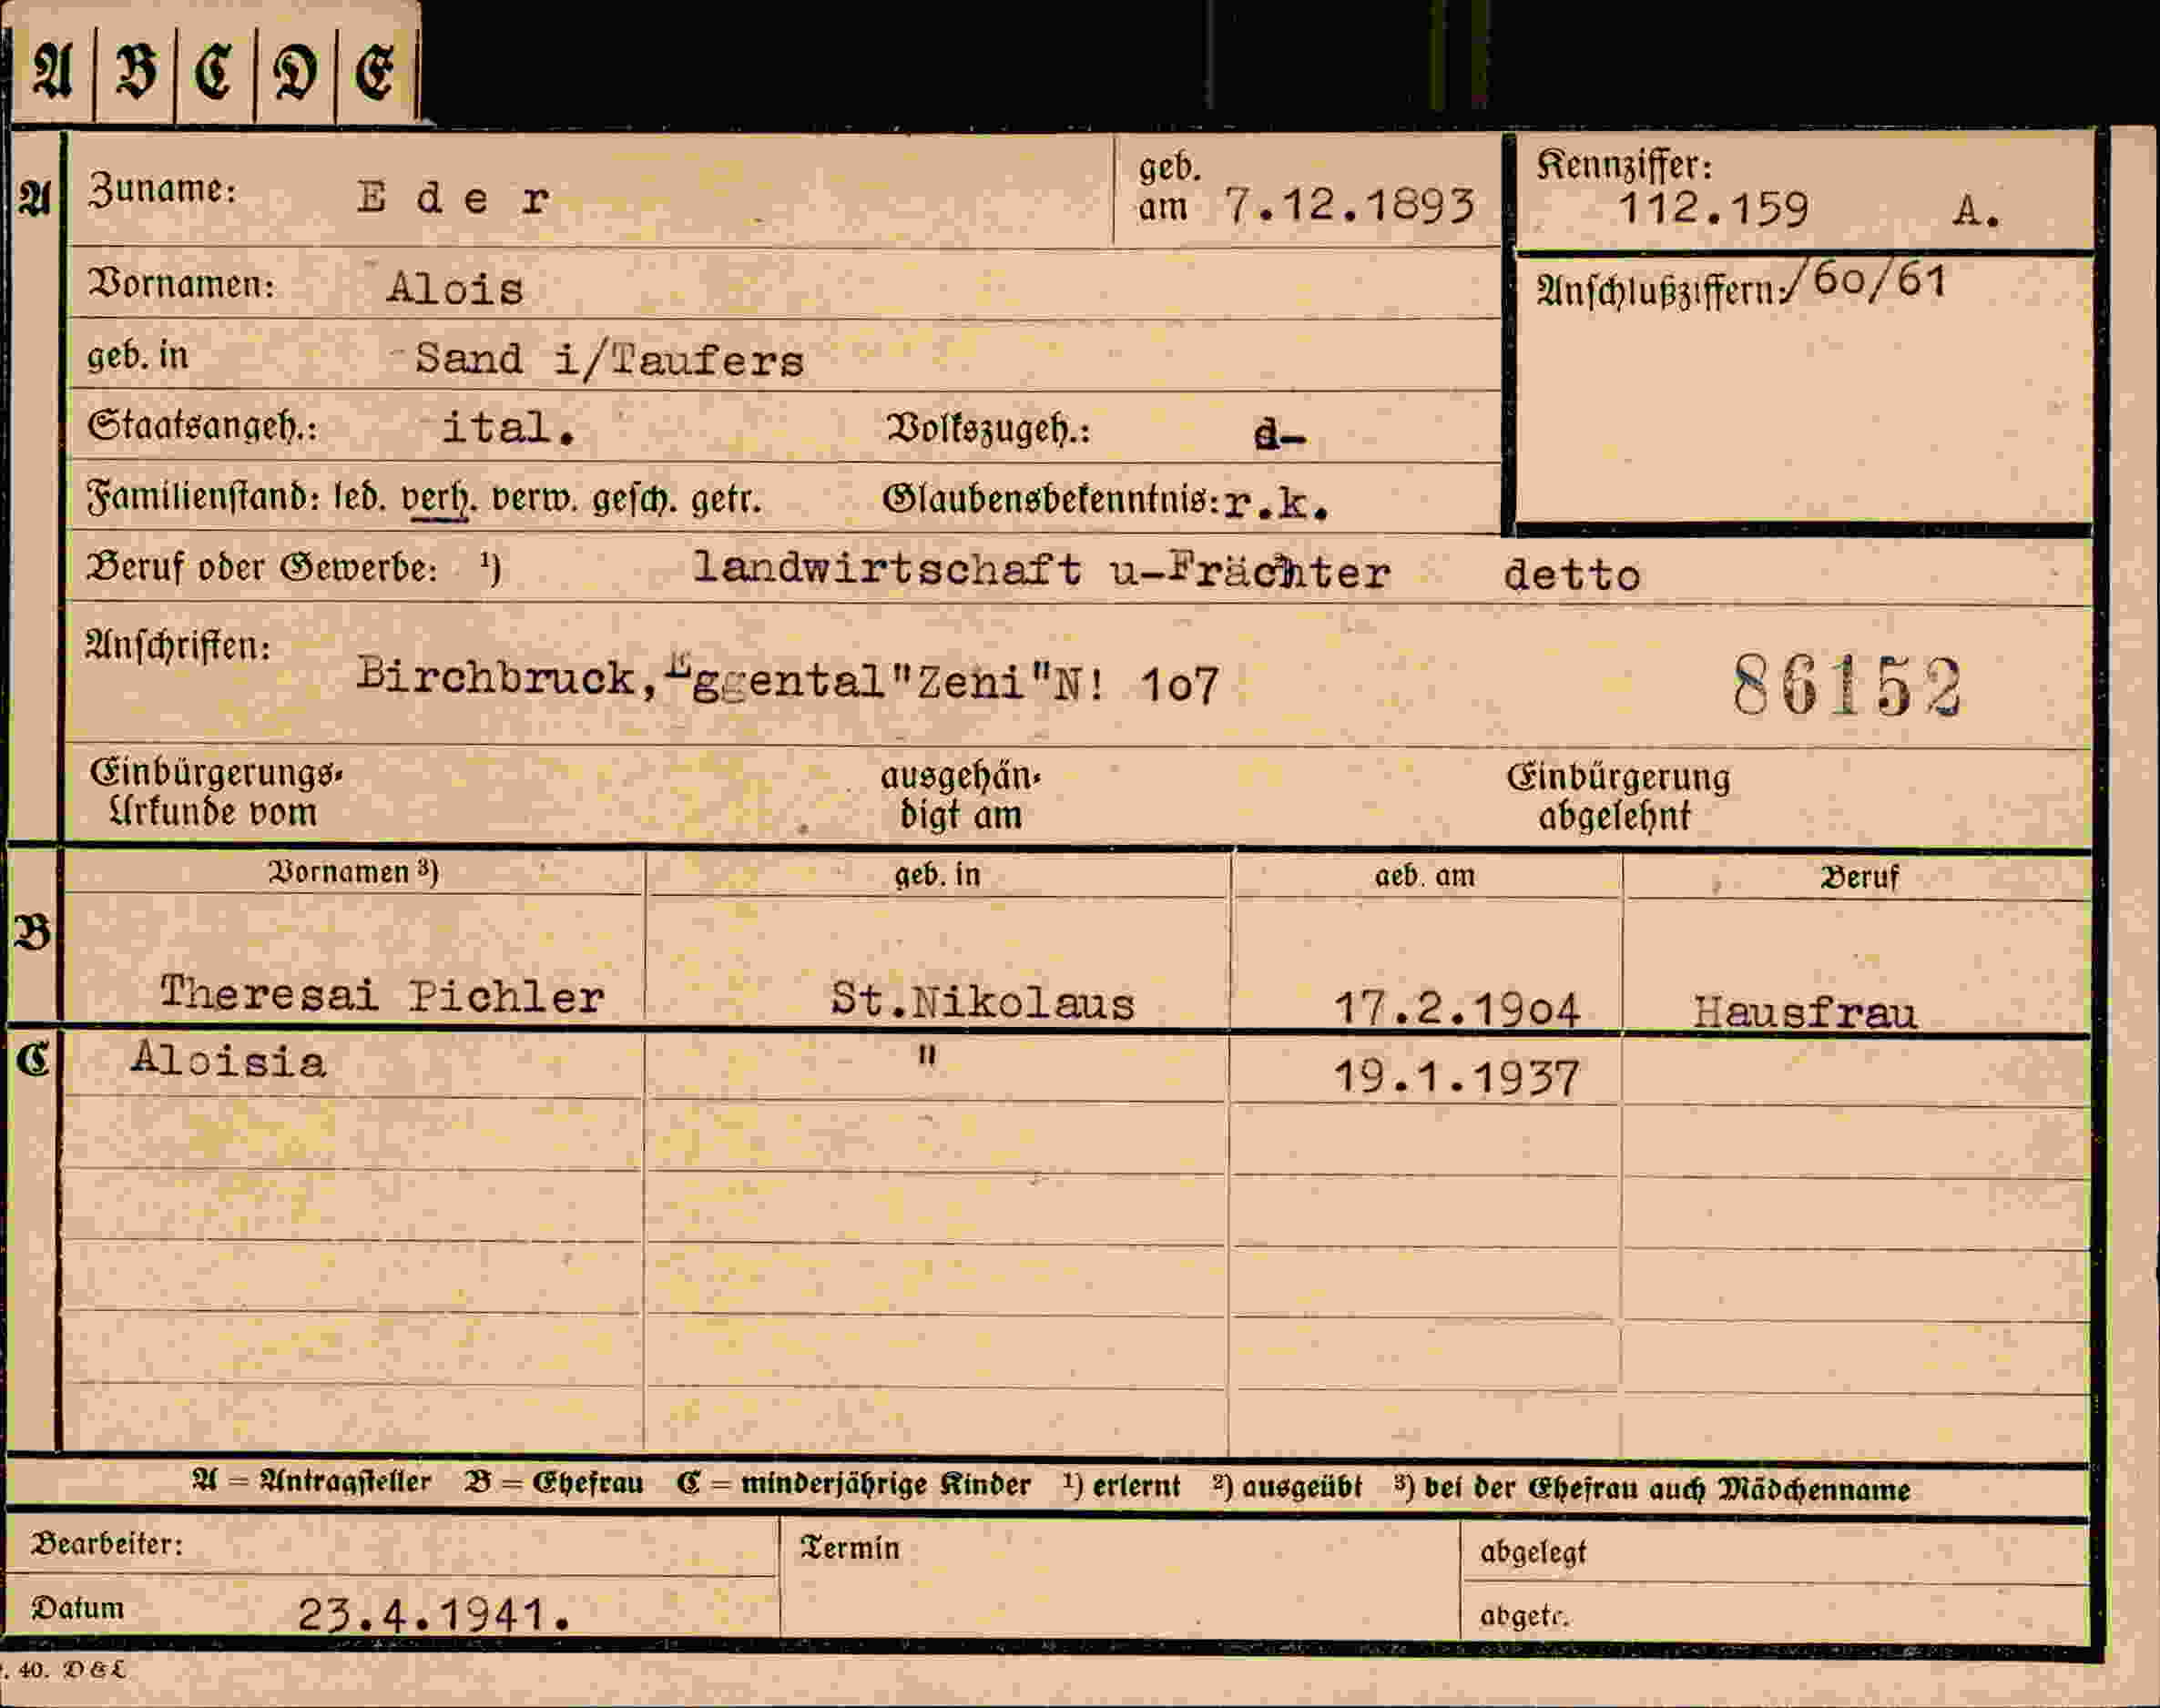 A | B | C | D | E
A Zuname: E d e r geb. am 7.12.1893 Kennziffer: 112.159 A.
Vornamen: Alois Anschlußziffern: /60/61
geb. in Sand i/Taufers
Staatsangeh.: ital. Volkszugeh.: d-
Familienstand: led. verh. verw. gesch. getr. Glaubensbekenntnis: r.k.
Beruf oder Gewerbe: ¹) landwirtschaft u-Frächter detto
Anschriften: Birchbruck, Eggental "Zeni" N! 1o7 86152
Einbürgerungs- ausgehän- Einbürgerung
Urkunde vom digt am abgelehnt
Vornamen ³) geb. in geb. am Beruf
B
Theresai Pichler St.Nikolaus 17.2.19o4 Hausfrau
C Aloisia " 19.1.1937
A = Antragsteller B = Ehefrau C = minderjährige Kinder ¹) erlernt ²) ausgeübt ³) bei der Ehefrau auch Mädchenname
Bearbeiter: Termin abgelegt
Datum 23.4.1941. abgetr.
. 40. D & L